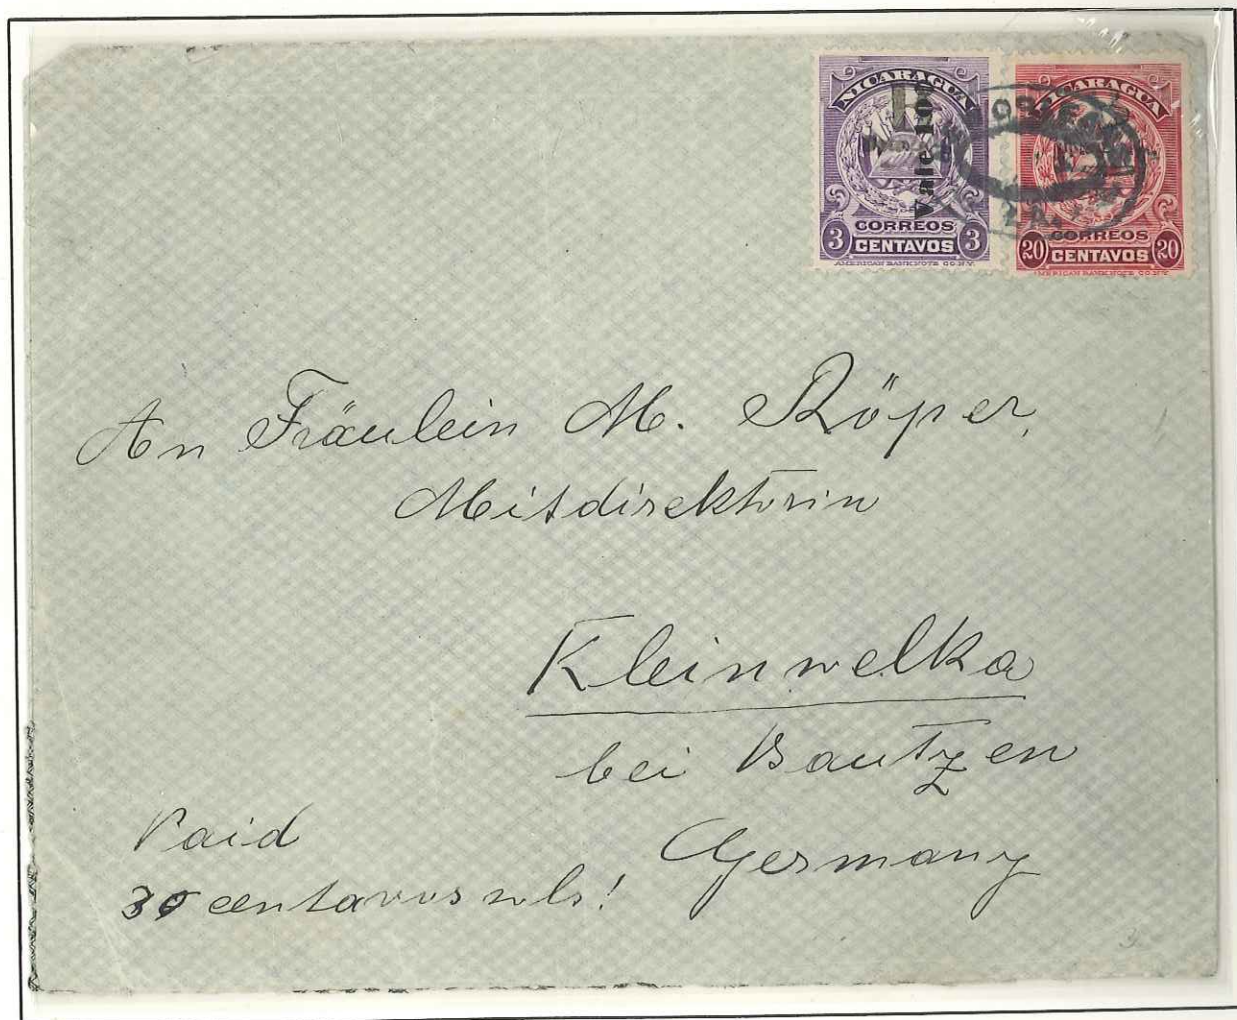 NICARAGUA
B
Vale 10
3 CORREOS 3
CENTAVOS
AMERICAN BANK NOTE CO. N.Y.
NICARAGUA
20 CORREOS 20
CENTAVOS
AMERICAN BANK NOTE CO. N.Y.
An Fräulein M. Röper,
Mitdirektorin
Kleinwelka
bei Bautzen
Germany
Paid
30 centavos !